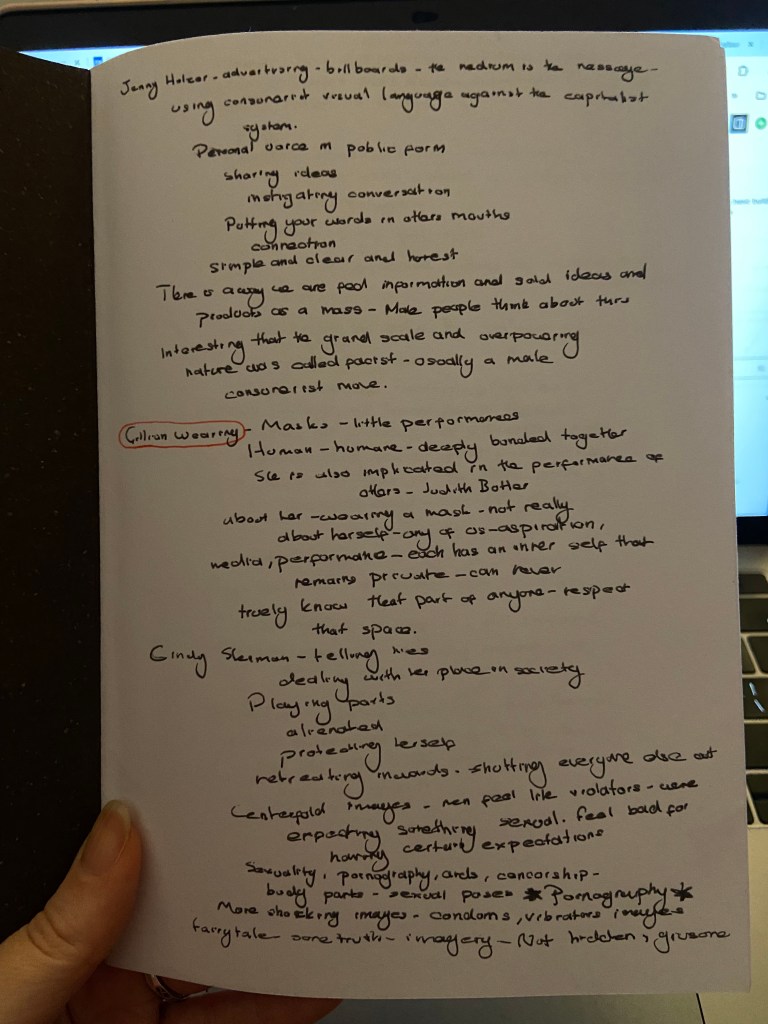 Jenny Holzer - advertising - billboards - the medium is the message -
using consumerist visual language against the capitalist
system.
Personal voice in public form
sharing ideas
instigating conversation
Putting your words in others mouths
connection
simple and clear and honest
There is a way we are feed information and sold ideas and
products as a mass - Make people think about this
Interesting that the grand scale and overpowering
nature was called facist - usually a male
consumerist move.
Gillian Wearing - Masks - little performances
Human - humane - deeply bonded together
She is also implicated in the performance of
others - Judith Butler
about her - wearing a mask - not really
about herself - any of us - aspiration,
media, performance - each has an inner self that
remains private - can never
truely know that part of anyone - respect
that space.
Cindy Sherman - telling lies
dealing with her place in society
Playing parts
alienated
protecting herself
retreating inwards. shutting everyone else out
Centerfold images - men feel like violators - were
expecting something sexual. feel bad for
having certain expectations
Sexuality, pornography, aids, censorship -
body parts - sexual poses * Pornography *
More shocking images - condoms, vibrators images
fairytale some truth - imagery - Not hidden, grusome